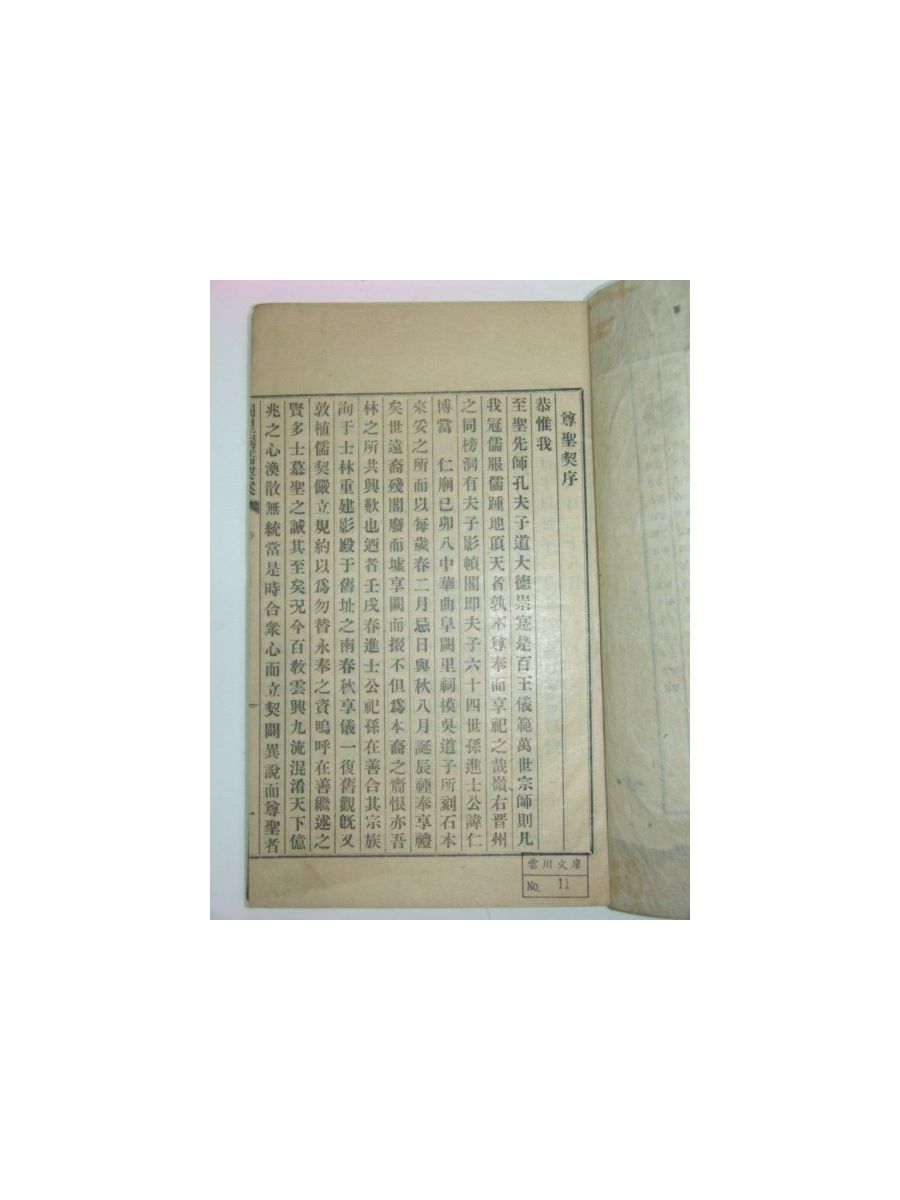 尊聖契序
恭惟我
至聖先師孔夫子道大德崇寔是百王儀範萬世宗師則凡
我冠儒服儒踵地頂天者孰不尊奉而享祀之哉嶺右晋州
之同榜洞有夫子影幀閣即夫子六十四世孫進士公諱仁
博當 仁廟己卯入中華曲阜闕里祠模吳道子所刻石本
來妥之所而以每歲春二月忌日與秋八月誕辰禋奉享禮
矣世遠裔殘閣廢而墟享闕而掇不但爲本裔之齎恨亦吾
林之所共興歎也迺者壬戌春進士公祀孫在善合其宗族
詢于士林重建影殿于舊址之南春秋享儀一復舊觀旣又
敦植儒契嚴立規約以爲勿替永奉之資嗚呼在善繼述之
賢多士慕聖之誠其至矣况今百敎雲興九流混淆天下億
兆之心渙散無統當是時合衆心而立契闢異說而尊聖者
序
一
雲川文庫
No. 11